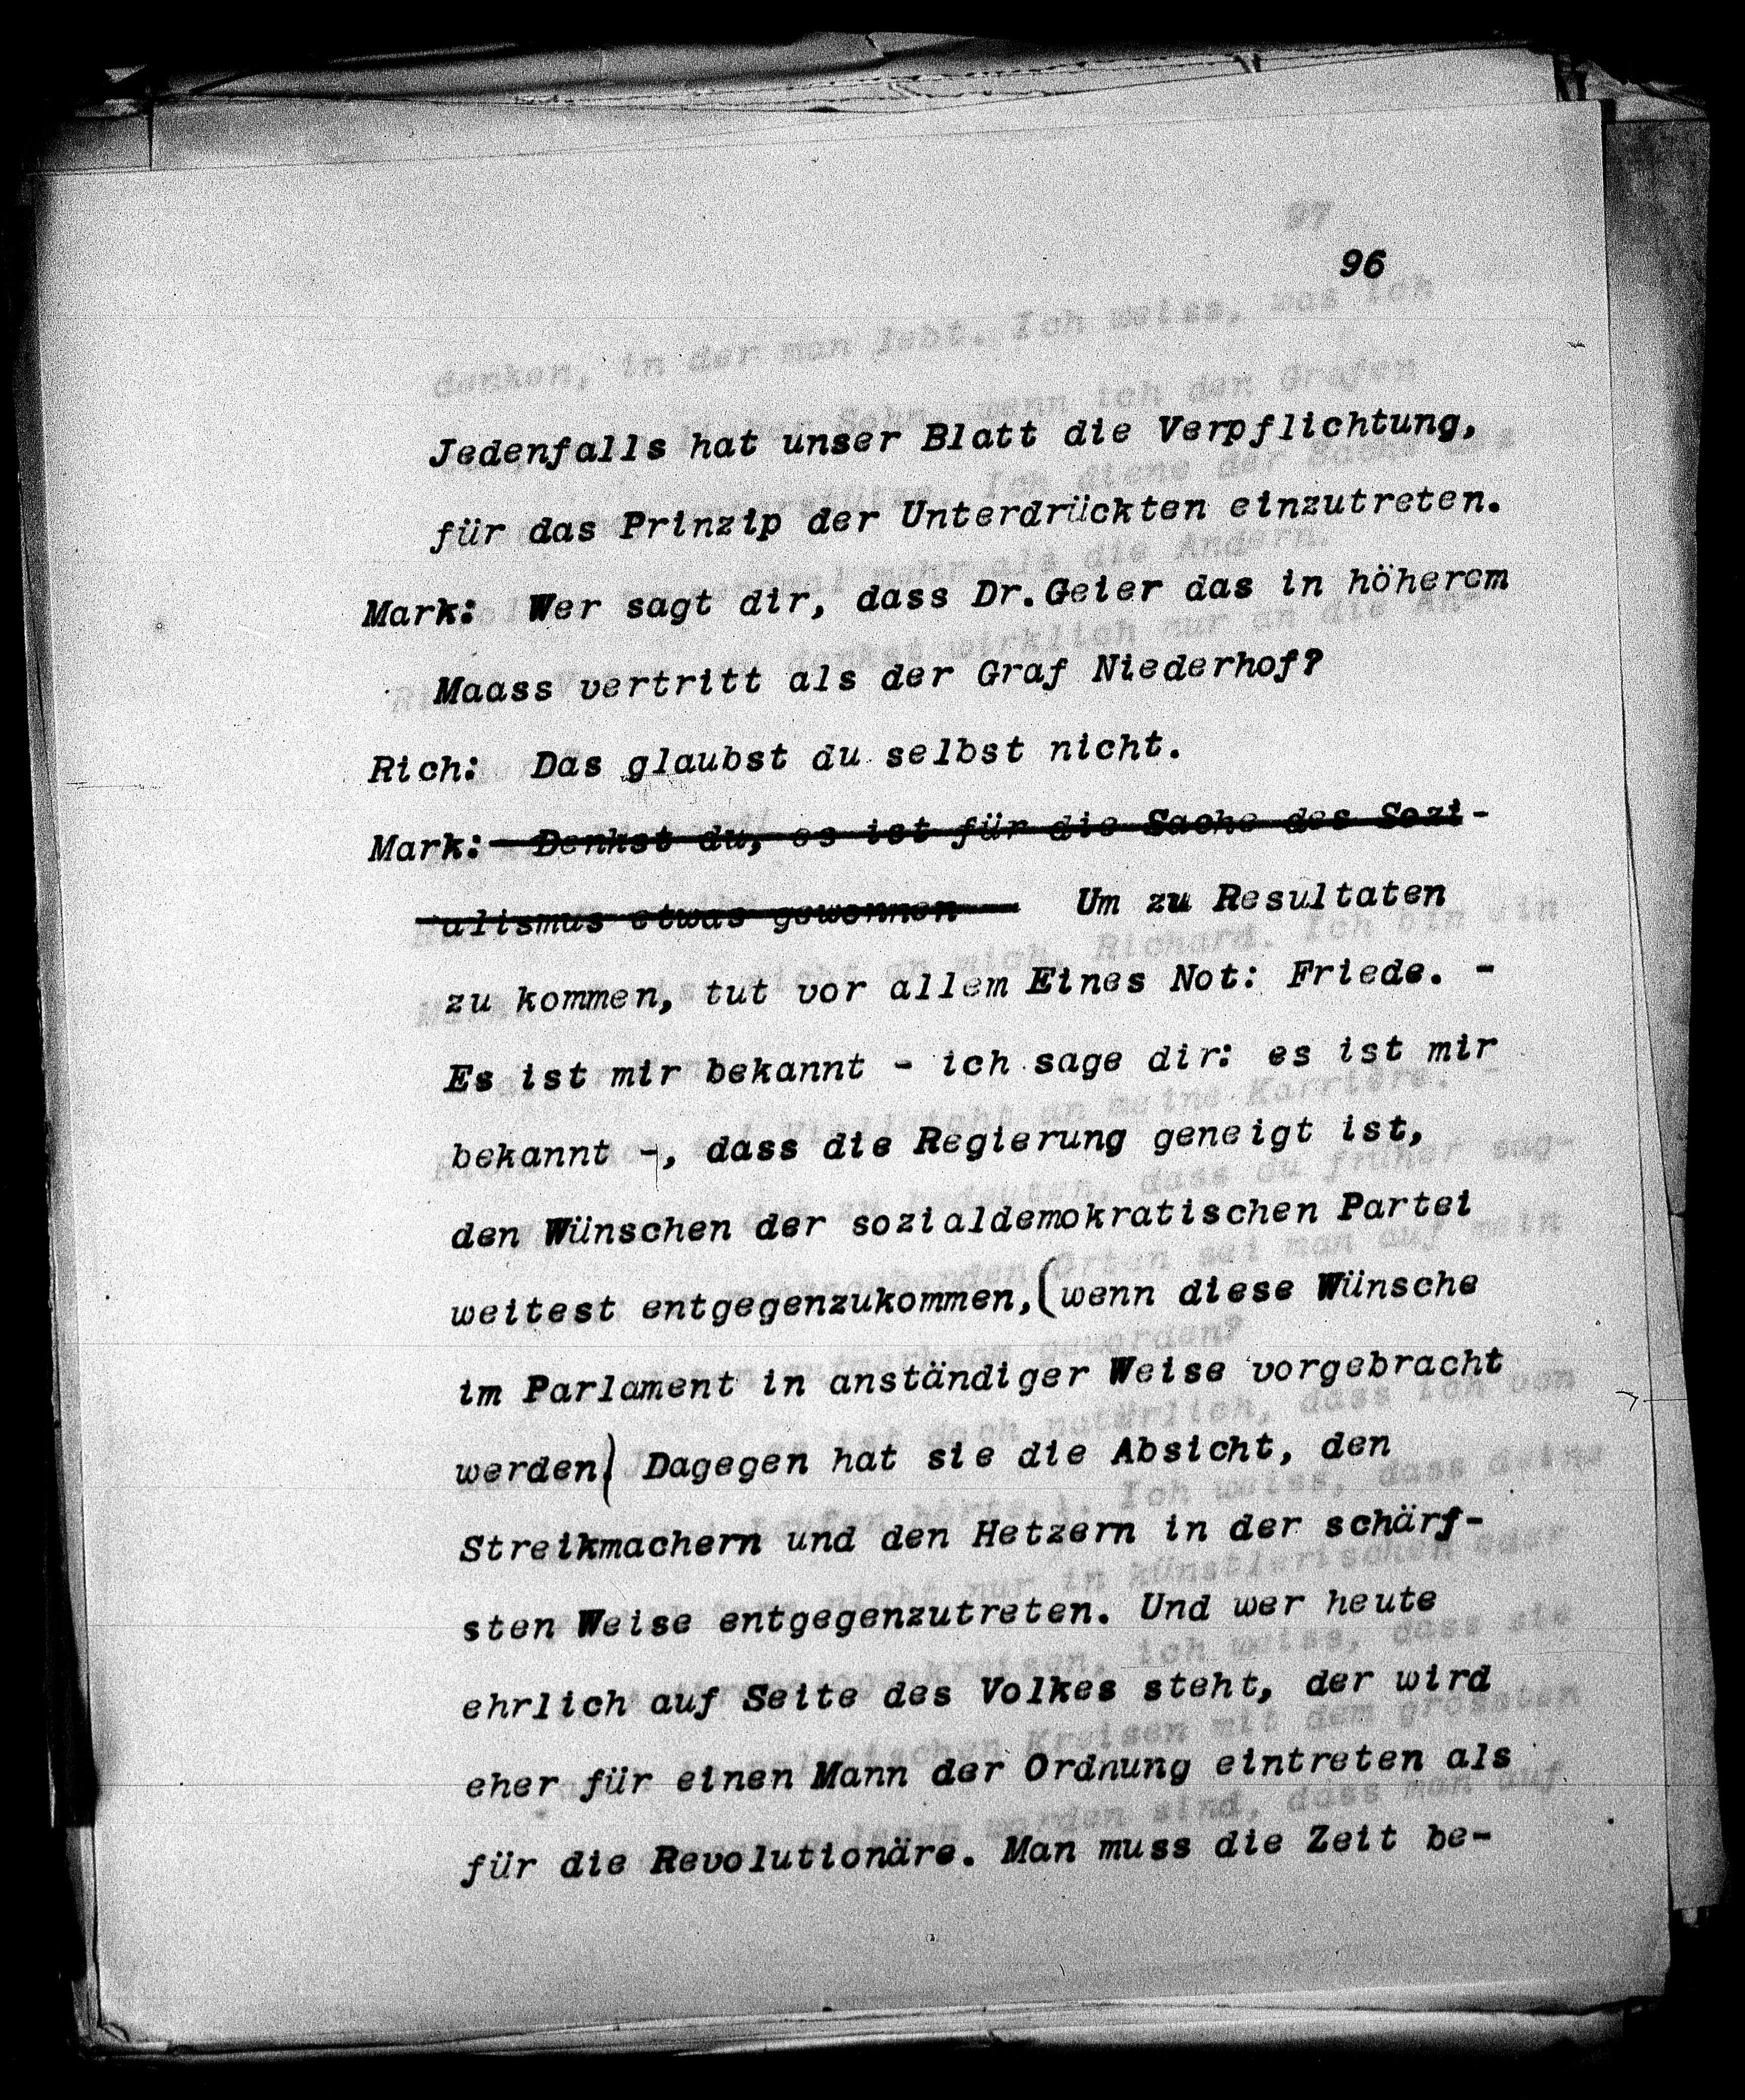 96
Jedenfalls hat unser Blatt die Verpflichtung,
für das Prinzip der Unterdrückten einzutreten.
Mark: Wer sagt dir, dass Dr.Geier das in höherem
Maass vertritt als der Graf Niederhof?
Rich: Das glaubst du selbst nicht.
Mark: Denkst du, es ist für die Sache des Sozi-
alismus etwas gewonnen Um zu Resultaten
zu kommen, tut vor allem Eines Not: Friede. -
Es ist mir bekannt - ich sage dir: es ist mir
bekannt -, dass die Regierung geneigt ist,
den Wünschen der sozialdemokratischen Partei
weitest entgegenzukommen, (wenn diese Wünsche
im Parlament in anständiger Weise vorgebracht
werden.) Dagegen hat sie die Absicht, den
Streikmachern und den Hetzern in der schärf-
sten Weise entgegenzutreten. Und wer heute
ehrlich auf Seite des Volkes steht, der wird
eher für einen Mann der Ordnung eintreten als
für die Revolutionäre. Man muss die Zeit be-